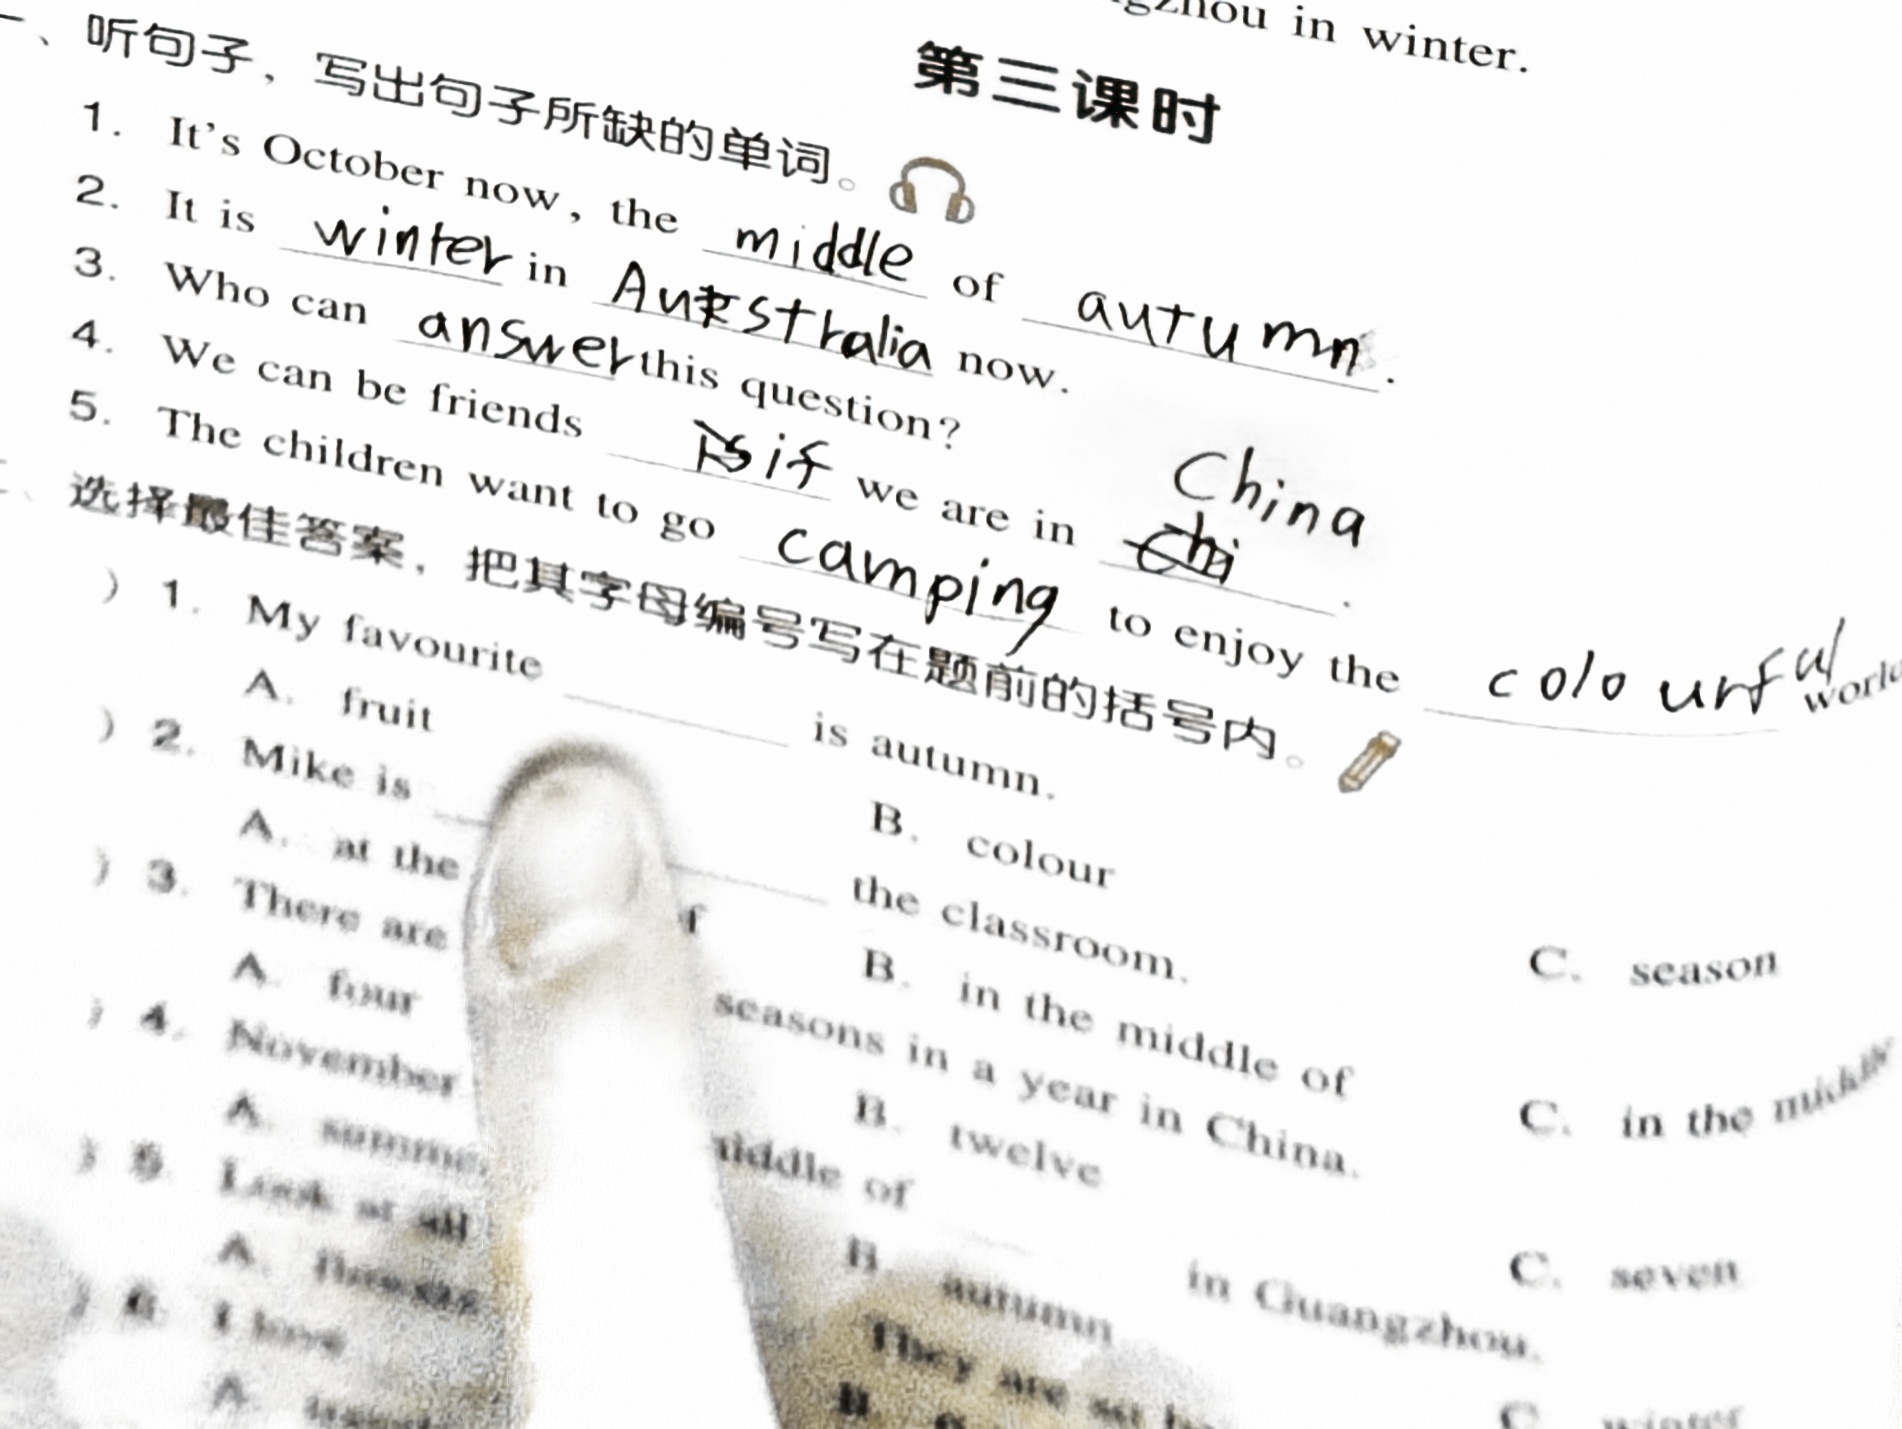 gzhou in winter.
第三课时
一、听句子，写出句子所缺的单词。
1. It's October now, the middle of autumn.
2. It is winter in Australia now.
3. Who can answer this question?
4. We can be friends if we are in China.
5. The children want to go camping to enjoy the colourful world
、选择最佳答案，把其字母编号写在题前的括号内。
) 1. My favourite ______ is autumn.
A. fruit B. colour C. season
) 2. Mike is ______ the classroom.
A. at the f B. in the middle of C. in the middle
) 3. There are seasons in a year in China.
A. four B. twelve C. seven
) 4. November middle of ______ in Guangzhou.
A. summe B. autumn C. winter
) 5. Look at all They are so
A. B
) 6. I love
A.